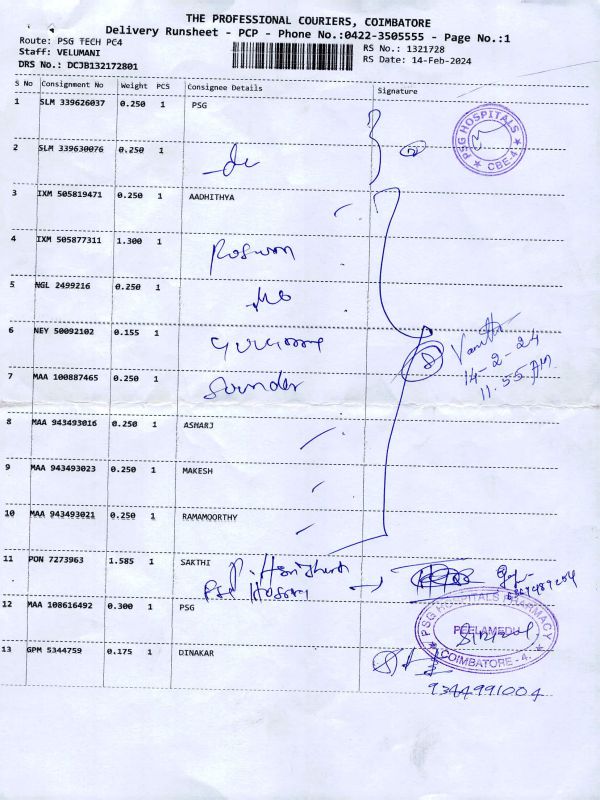 THE PROFESSIONAL COURIERS, COIMBATORE
Delivery Runsheet - PCP - Phone No.:0422-3505555 - Page No.:1
Route: PSG TECH PC4
RS No.: 1321728
Staff: VELUMANI
RS Date: 14-Feb-2024
DRS No.: DCJB132172801
S No Consignment No Weight PCS Consignee Details Signature
1 SLM 339626037 0.250 1 PSG
PSG HOSPITALS ★ CBE-4 ★
2 SLM 339630076 0.250 1
3 IXM 505819471 0.250 1 AADHITHYA
4 IXM 505877311 1.300 1
5 NGL 2499216 0.250 1
6 NEY 50092102 0.155 1
14-2-24
11.55 AM
7 MAA 100887465 0.250 1 Sounder
8 MAA 943493016 0.250 1 ASMARJ
9 MAA 943493023 0.250 1 MAKESH
10 MAA 943493021 0.250 1 RAMAMOORTHY
11 PON 7273963 1.585 1 SAKTHI
12 MAA 108616492 0.300 1 PSG
PSG HOSPITALS PHARMACY
PEELAMEDU
★ COIMBATORE - 4. ★
13 GPM 5344759 0.175 1 DINAKAR
9344991004